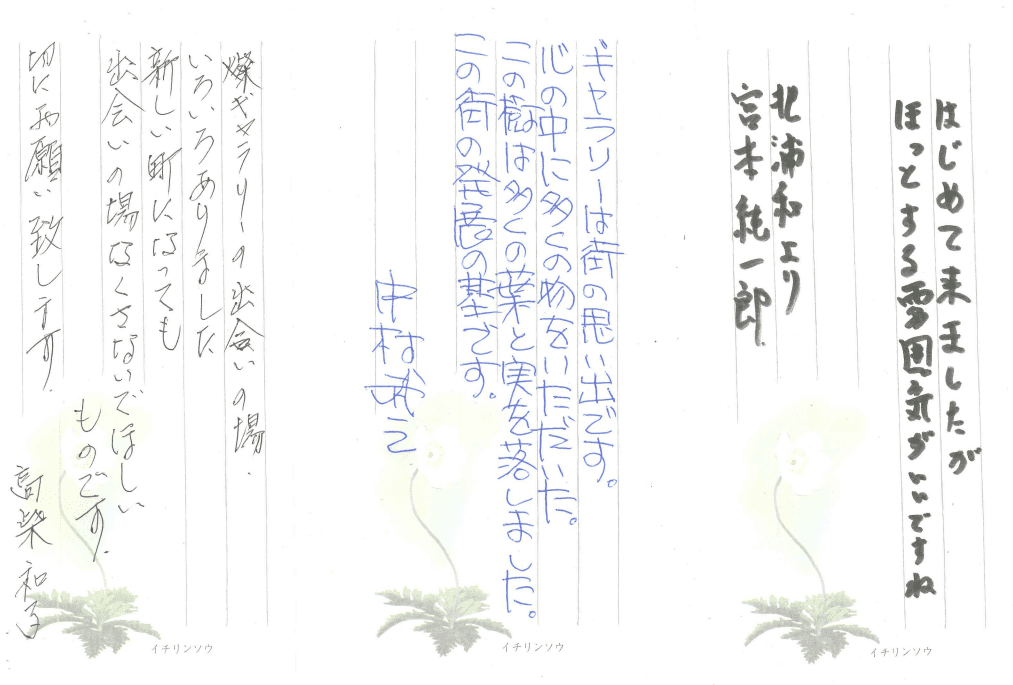 はじめて来ましたが
ほっとする雰囲気がいいですね
北浦和より
宮本純一郎
イチリンソウ
ギャラリーは街の思い出です。
心の中に多くの物をいただいた。
この樹は多くの葉と実を落しました。
この街の発展の基です。
中村
イチリンソウ
燦ギャラリーの出会いの場.
いろいろありました
新しい町になっても
出会いの場なくさないでほしい
ものです.
切にお願い致します.
高柴和子
イチリンソウ